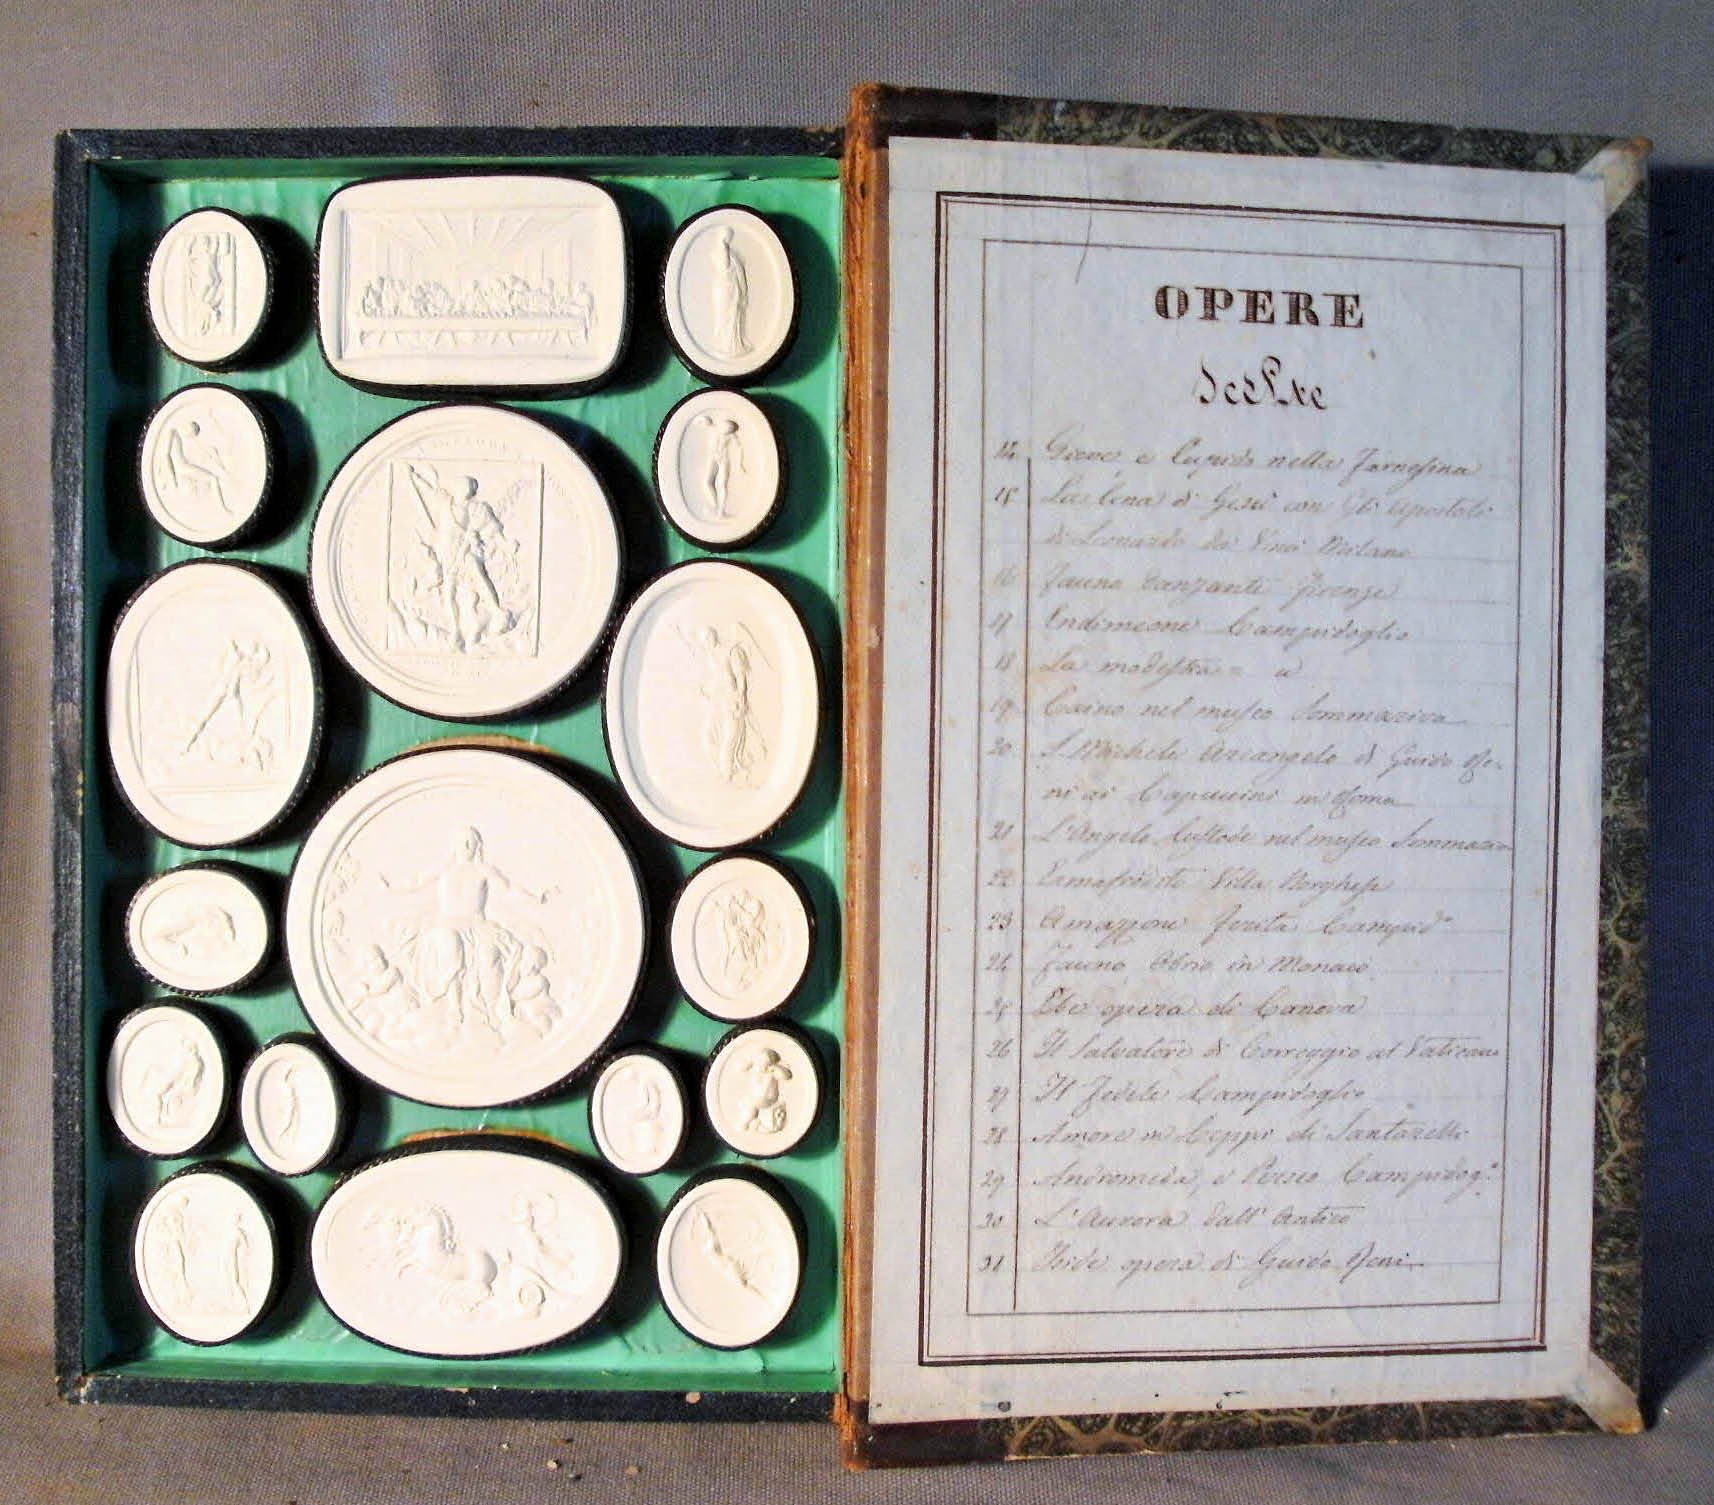 OPERE
Scelte
14 Giove e Cupido nella Farnesina
15 La Cena di Gesù con Gli Apostoli
di Leonardo da Vinci Milano
16 Fauno Danzante Firenze
17 Endimione Campidoglio
18 La modestia
19 Caino nel museo Sommariva
20 S. Michele Arcangelo di Guido Re-
ni ai Capuccini in Roma
21 L'Angelo Custode nel museo Sommariva
22 Villa Borghese
23 Amazzone ferita Campid°
24 Fauno Ebrio in Monaco
25 Ebe opera di Canova
26 Il Salvatore di Correggio al Vaticano
27 Il Fedele Campidoglio
28 Amore in Ceppi di Santarelli
29 Andromeda, e Perseo Campidog.°
30 L'Aurora dall'Antico
31 opera di Guido Reni